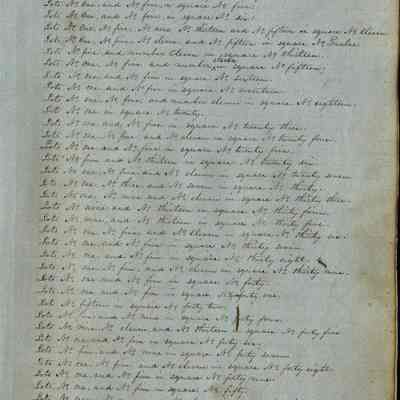 Lots No one and No five in square No five.
Lots No one and No five in square No six.
Lots No one, No five, No nine No thirteen and No fifteen in square No eleven
Lots No one, No five No eleven and No fifteen in square No Twelve.
Lots No five and number eleven in square No thirteen.
Lots No one, No five and number eleven in square No fifteen.
Lots No one and No five in square No sixteen.
Lots No one and No five in square No seventeen.
Lots No one No five and number eleven in square No eighteen.
Lots No one in square No twenty.
Lots No one and No five in square No twenty three.
Lots No one No five and No eleven in square No twenty four.
Lots No one and No five in square No twenty five.
Lots No five and No thirteen in square No twenty six.
Lots No one No five and No eleven in square No twenty seven.
Lots No one No three and No seven in square No thirty.
Lots No one, No nine and No eleven in square No thirty three.
Lots No nine and No thirteen in square No thirty four.
Lots No one, and No thirteen in square No thirty five.
Lots No one No five and No eleven in square No thirty six.
Lots No one and No five in square No thirty seven.
Lots No one, and No five in square No thirty eight.
Lots No one No five, and No eleven in square No thirty nine.
Lots No one and No five in square No forty.
Lots No one and No five in square No forty one.
Lots No fifteen in square No forty two.
Lots No five and No nine in square No forty four.
Lots No nine No eleven and No thirteen in square No forty five
Lots No one and No five in square No forty six.
Lots No five and No nine in square No forty seven
Lots No one No five and No eleven in square No forty eight
Lots No one, and No five in square No forty nine.
Lots No one and No five in square No fifty